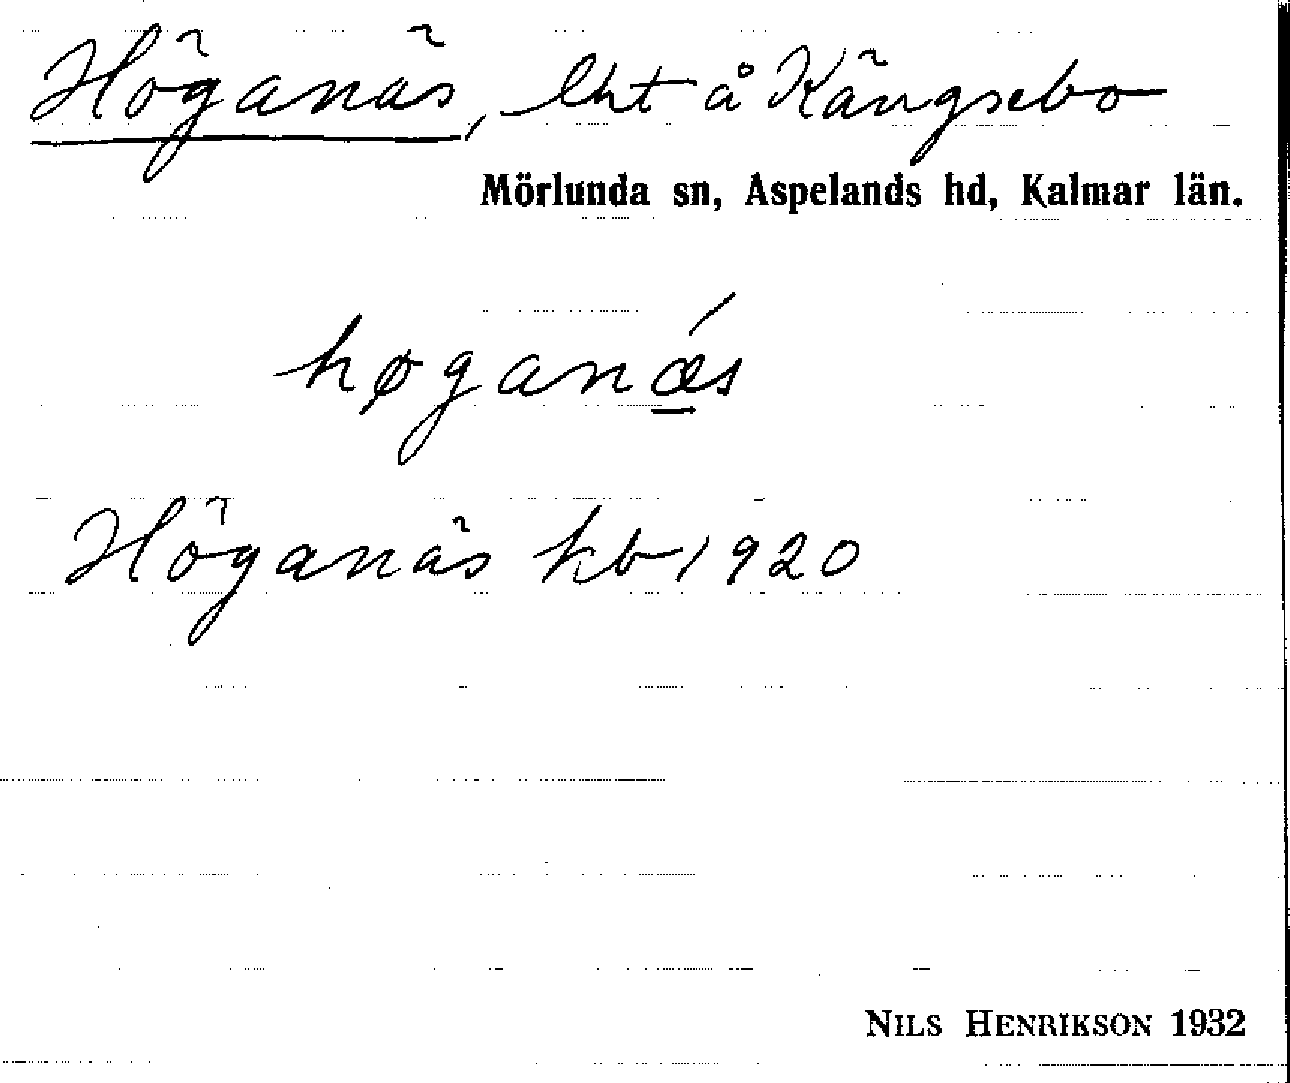 Höganäs, lht å Kängsebo
Mörlunda sn, Aspelands hd, Kalmar län.
høganǽs
Höganäs kb 1920
NILS HENRIKSON 1932